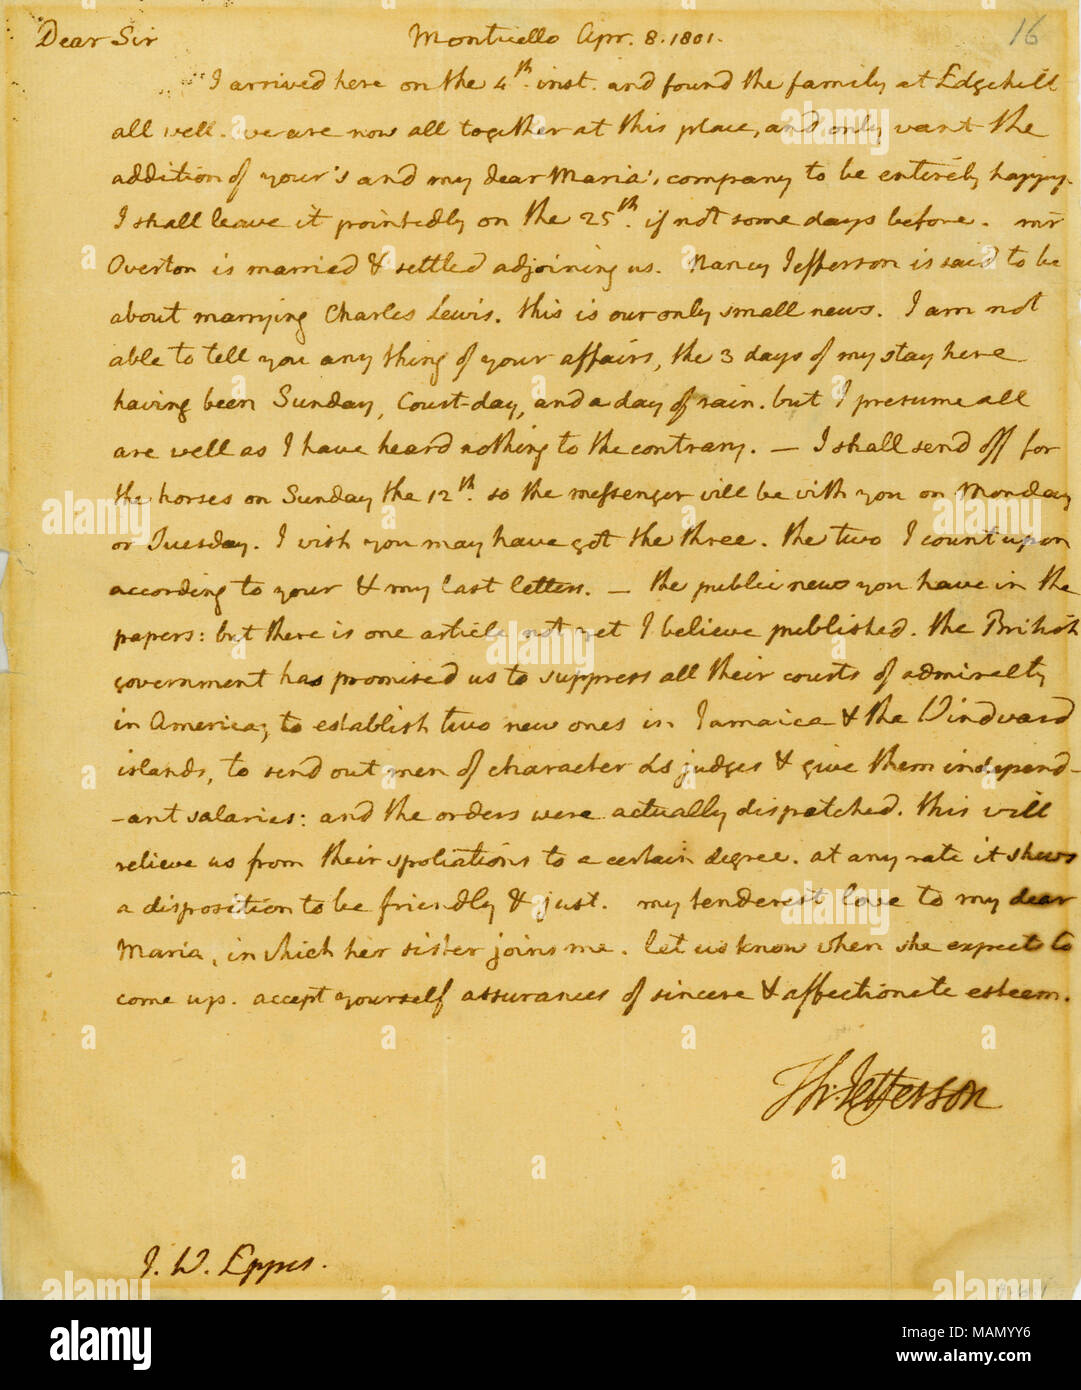 Dear Sir Monticello Apr. 8. 1801. 16
I arrived here on the 4th. inst. and found the family at Edgehill
all well. we are now all together at this place, and only want the
addition of your's and my dear Maria's company to be entirely happy.
I shall leave it pointedly on the 25th. if not some days before. mr
Overton is married & settled adjoining us. Nancy Jefferson is said to be
about marrying Charles Lewis. this is our only small news. I am not
able to tell you any thing of your affairs, the 3 days of my stay here
having been Sunday, Court-day, and a day of rain. but I presume all
are well as I have heard nothing to the contrary. — I shall send off for
the horses on Sunday the 12th. so the messenger will be with you on Monday
or Tuesday. I wish you may have got the three. the two I count upon
according to your & my last letters. — the public news you have in the
papers: but there is one article not yet I believe published. the British
government has promised us to suppress all their courts of admiralty
in America, to establish two new ones in Jamaica & the Windward
islands, to send out men of character as judges & give them independ-
-ant salaries: and the orders were actually dispatched. this will
relieve us from their spoliations to a certain degree. at any rate it shews
a disposition to be friendly & just. my tenderest love to my dear
Maria, in which her sister joins me. let us know when she expects to
come up. accept yourself assurances of sincere & affectionate esteem.
Th: Jefferson
J. W. Eppes.
alamy
Image ID: MAMYY6
www.alamy.com